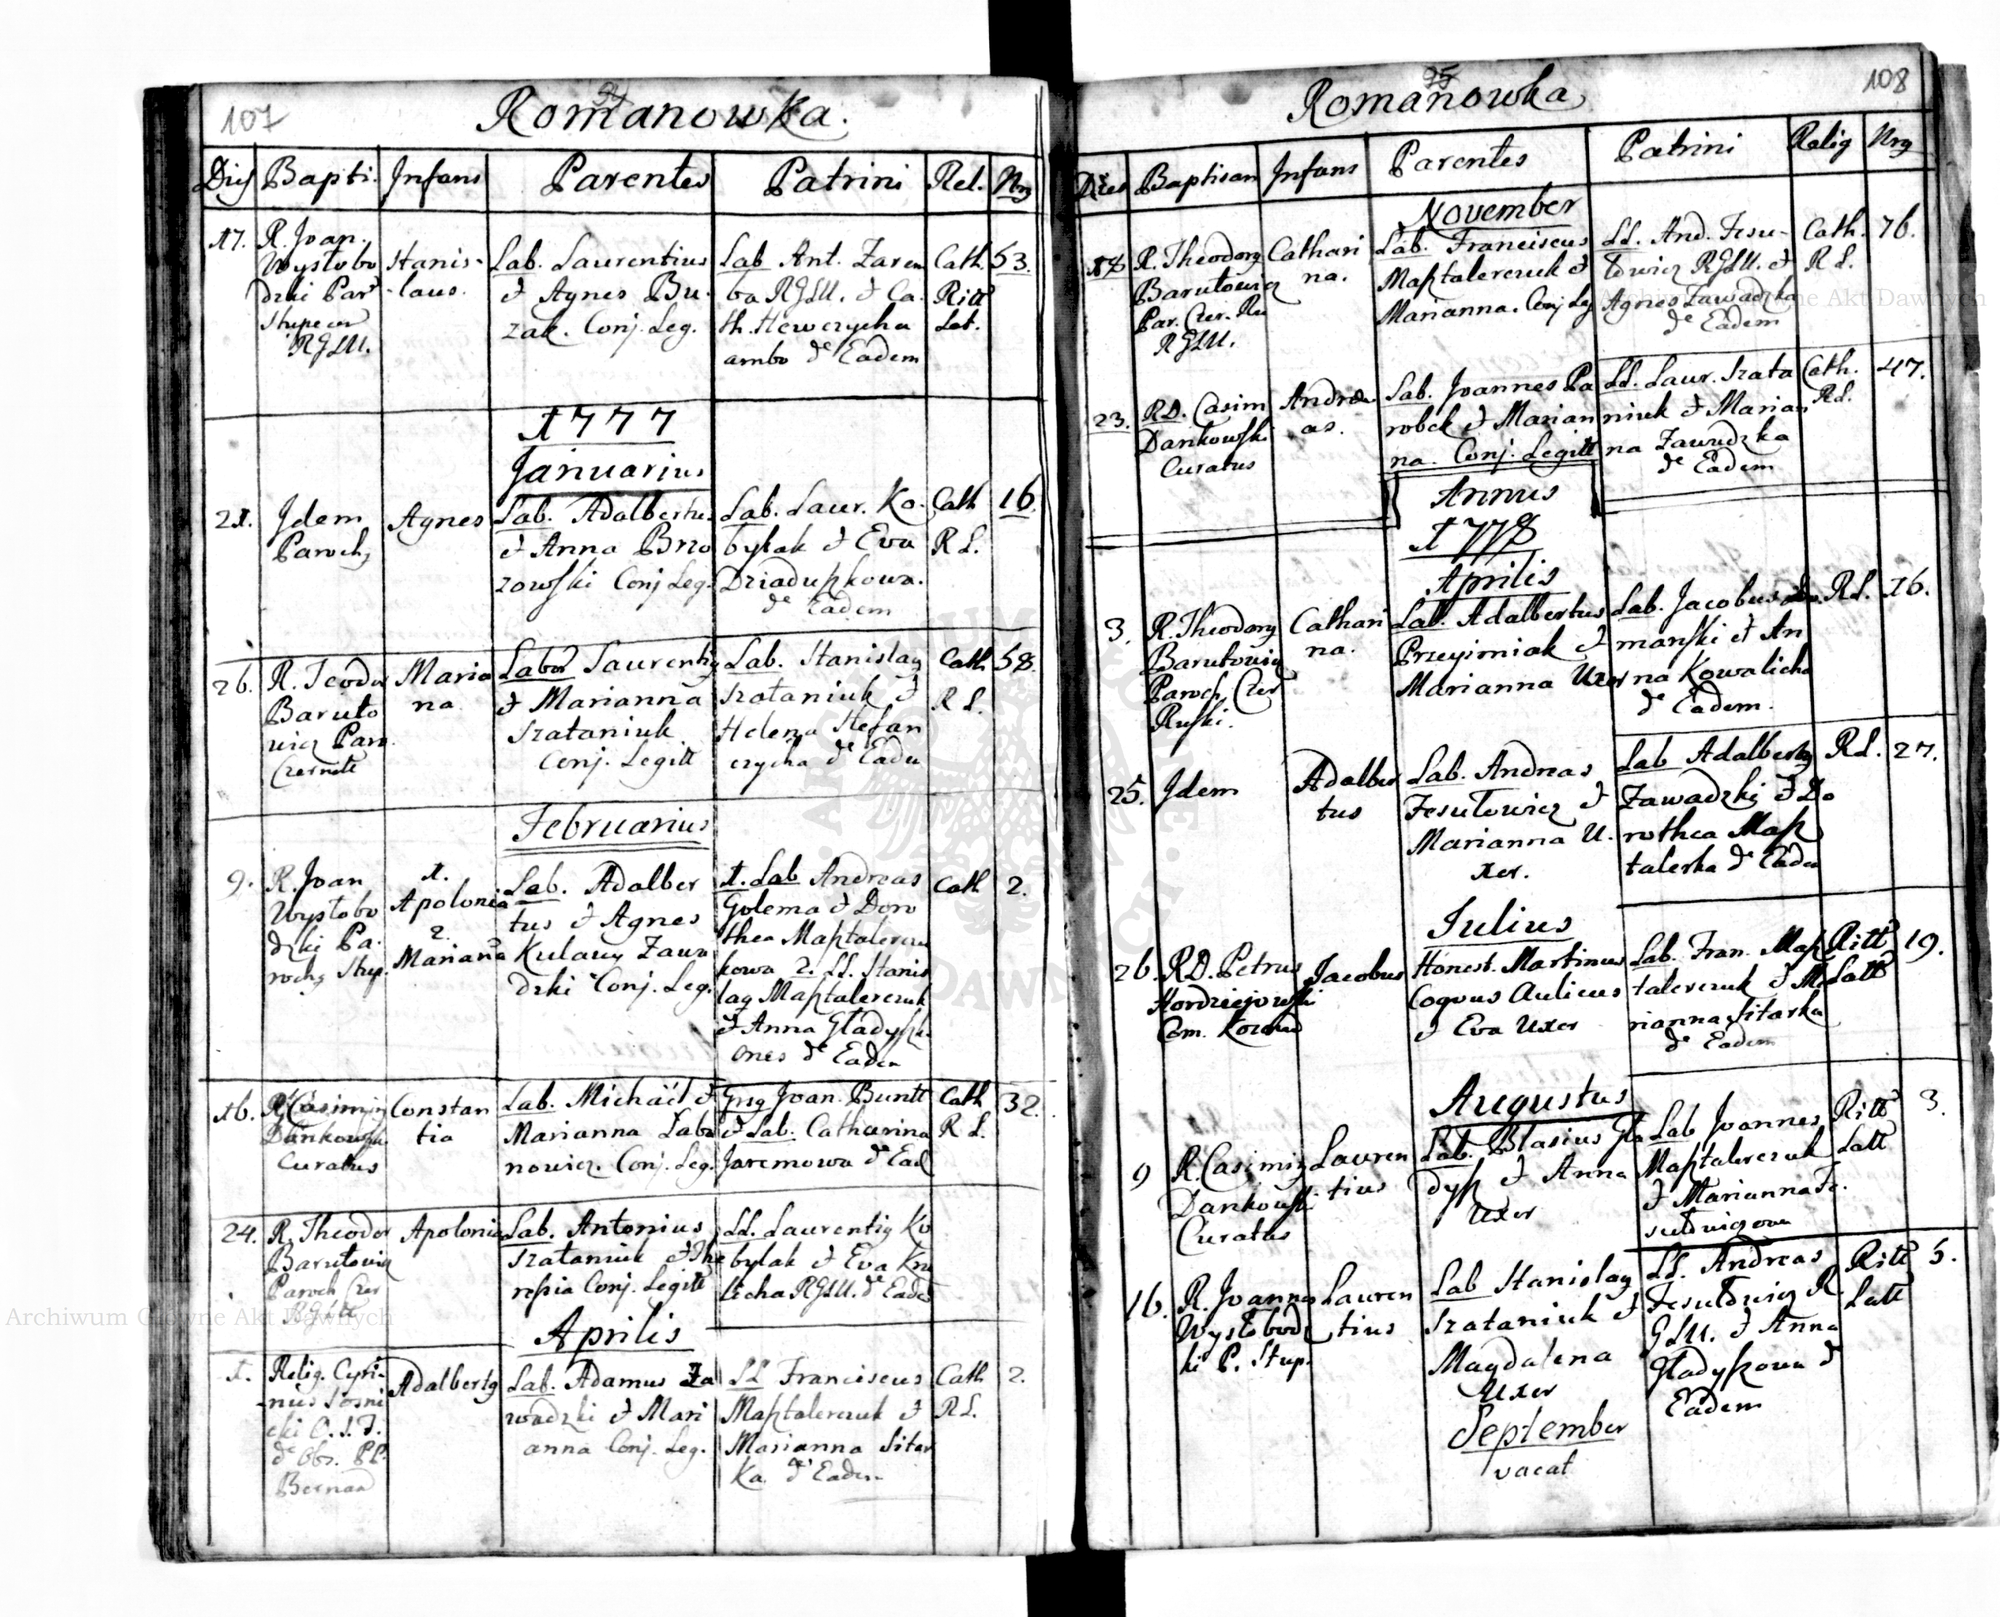 107
Romanowka.
Dies Bapti. Infans Parentes Patrini Rel. Nrg
17. R. Joan. Wystobo dzki Par Stupecen RGLU.
Stanis-
laus.
Lab. Laurentius
et Agnes Bu.
zak. Conj. Leg.
Lab Ant. Zarem
ba RGLU. et Ca.
th. Hewczycha
ambo de Eadem
Cath
Ritt
Lat.
53.
1777
Januarius
21. Idem
Parochg
Agnes
Lab. Adalbertu.
et Anna Brzo
zowski Conj Leg.
Lab. Laur. Ko.
bylak et Eva
Dziaduszkowa.
de Eadem
Cath
R L.
16.
26. R. Teodor
Baruto
wicz Paro.
Czernell
Maria
na
Labor Laurentig
et Marianna
Szataniuk
Conj. Legitt
Lab. Stanislag
Szataniuk et
Helena Stefan
czycha de Eadu
Cath
R L.
58.
Februarius
9. R. Joan
Wystobo
dzki Pa.
rochg Stup.
1.
Apolonia
2.
Mariana
Lab. Adalber
tus et Agnes
Kulawy Zawa
dzki Conj. Leg.
1. Lab Andreas
Golema et Doro
thea Masztalerczu
kowa 2. LL. Stanis
lag Masztalerczuk
et Anna Gladysz.
ones de Eaden
Cath
2.
16. R Casimirg
Dankowski
Curatus
Constan
tia
Lab. Michaël et
Marianna Laba
nowicz. Conj. Leg.
Gng Joan. Buntt
et Lab. Catharina
Jaremowa de Ead
Cath
R L.
32.
24. R. Theodor
Barutowicz
Paroch Czer
RGLU
Apolonia
Lab. Antonius
Szataniuk et The
ressia Conj. Legitt
LL. Laurentig Ko
bylak et Eva Kru
licha RGLU. de Eade
Aprilis
1. Relig. Cypri-
nus Sosni
cki O. S. F.
de Obs. PP.
Bernad
Adalbertg
Lab. Adamus Za
wadzki et Mari
anna Conj. Leg.
LL Franciscus
Masztalerczuk et
Marianna Sitar
ka. de Eaden
Cath
R L.
2.
95
108
Romanowka
Dies Baptisan Infans Parentes Patrini Relig Nrg
November
18 R. Theodorg
Barutowicz
Par. Czer. Ru
RGLU.
Cathari
na.
Lab. Franciscus
Masztalerczuk et
Marianna. Conj Leg
LL. And. Jesu-
towicz RGLU. et
Agnes Zawadzka
de Eadem
Cath.
R L.
76.
23. RD. Casim
Dankowski
Curatus
Andre
as.
Lab. Joannes Pa
robek et Marian
na. Conj. Legitt
LL. Laur. Szata
niuk et Marian
na Zawadzka
de Eadem
Cath.
RL.
47.
Annus
1778
Aprilis
3. R. Theodorg
Barutowicz
Paroch Czer
Ruski.
Cathari
na.
Lab. Adalbertus
Przyimiak et
Marianna Uxor
Lab. Jacobus Do.
manski et An
na Kowalicha
de Eadem.
RL.
16.
25. Idem
Adalber
tus
Lab. Andreas
Jesutowicz et
Marianna U.
xer.
Lab Adalbertg
Zawadzki et Do
rothea Masz
talerka de Eadu
RL.
27.
Julius
26. RD. Petrus
Hordziejowski
Com. Kozerad
Jacobus
Honest. Martinus
Coquus Aulicus
et Eva Uxor
Lab. Fran. Masz
talerczuk et Ma
rianna Sitarka
de Eadem
Ritt
Latt
19.
Augustus
9 R. Casimirg
Dankowski
Curatus
Lauren
tius
Lab. Blasius Gla
dysz et Anna
Uxer
Lab Joannes
Masztalerczuk
et Marianna Je.
sutowiczowa
Ritt
Latt
3.
16. R. Joannes
Wystobodz
ki P. Stup.
Lauren
tius
Lab Stanislag
Szataniuk et
Magdalena
Uxer
LL. Andreas
Jesutowicz R.
GLU. et Anna
Gladyszowa de
Eadem
Ritt
Latt
5.
September
vacat
Archiwum Główne Akt Dawnych
Archiwum Główne Akt Dawnych